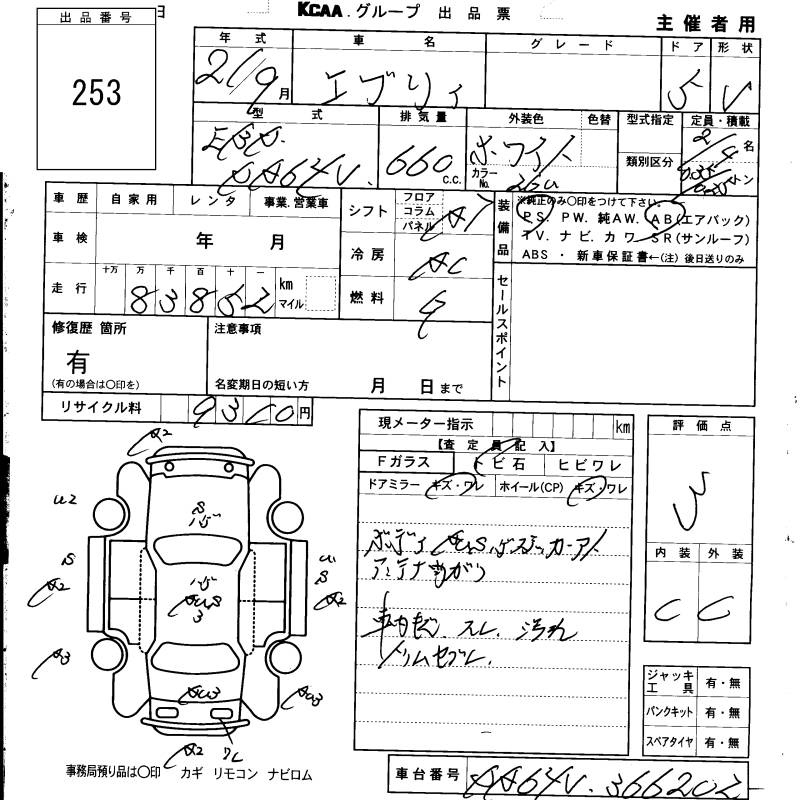 日
KCAA.グループ 出品票
主催者用
出品番号
253
年式 車名 グレード ドア 形状
21/9月 エブリィ 5 V
型式 排気量 外装色 色替 型式指定 定員・積載
EBD. 660 c.c. ホワイト 2/4 名
DA64V. カラーNo. 26U 類別区分 0.35/0.20 トン
車歴 自家用 レンタ 事業.営業車
車検 年 月
走行 十万 万 千 百 十 一 km マイル
83852
シフト フロア コラム パネル AT
冷房 AC
燃料 G
装備品
※純正のみ〇印をつけて下さい
PS. PW. 純AW. AB(エアバック)
TV. ナビ. カワ. SR(サンルーフ)
ABS ・ 新車保証書←(注)後日送りのみ
セールスポイント
修復歴 箇所
有
(有の場合は〇印を)
注意事項
名変期日の短い方 月 日まで
リサイクル料 9310円
現メーター指示 km
【査定員記入】
Fガラス トビ石 ヒビワレ
ドアミラー キズ・ワレ ホイール(CP) キズ・ワレ
ボディ AUS.ゲステッカーアト
アンテナ曲がり
車内モゾ スレ 汚れ
ドリムセブレ.
評価点
3
内装 外装
C C
ジャッキ工具 有・無
パンクキット 有・無
スペアタイヤ 有・無
A2
U2
S
バゲ
S
A2
A3
U
S
A2
バゲ
AUS
3
AU3
AU3
A2
ワレ
事務局預り品は〇印 カギ リモコン ナビロム
車台番号 DA64V-366202